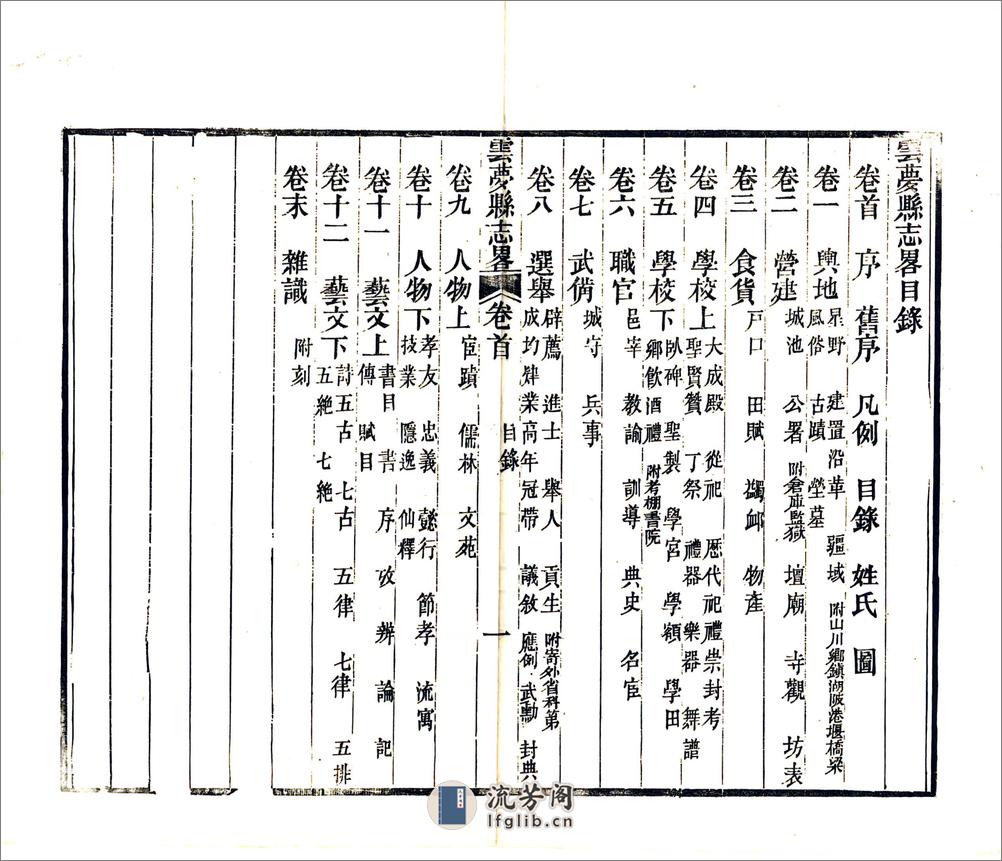 雲夢縣志畧目錄
卷首 序 舊序 凡例 目錄 姓氏 圖
卷一 輿地 星野 建置沿革 疆域 附山川鄉鎮湖陂港堰橋梁
風俗 古蹟 塋墓
卷二 營建 城池 公署 附倉庫監獄 壇廟 寺觀 坊表
卷三 食貨 戸口 田賦 蠲邺 物產
卷四 學校上 大成殿 從祀 歷代祀禮崇封考
聖賢贊 丁祭 禮器 樂器 舞譜
卷五 學校下 臥碑 聖製 學宮 學額 學田
鄉飲酒禮 附考棚書院
卷六 職官 邑宰 教諭 訓導 典史 名宦
卷七 武備 城守 兵事
卷八 選舉 辟薦 進士 舉人 貢生 附寄外省科第
成均肄業高年冠帶 議敘 應例 武勳 封典
雲夢縣志畧 卷首 目錄 一
卷九 人物上 宦蹟 儒林 文苑
卷十 人物下 孝友 忠義 懿行 節孝 流寓
技業 隱逸 仙釋
卷十一 藝文上 書目 書 序 攷 辨 論 記
傳 賦目
卷十二 藝文下 詩五古 七古 五律 七律 五排
五絕 七絕
卷末 雜識 附刻
流芳阁
lfglib.cn